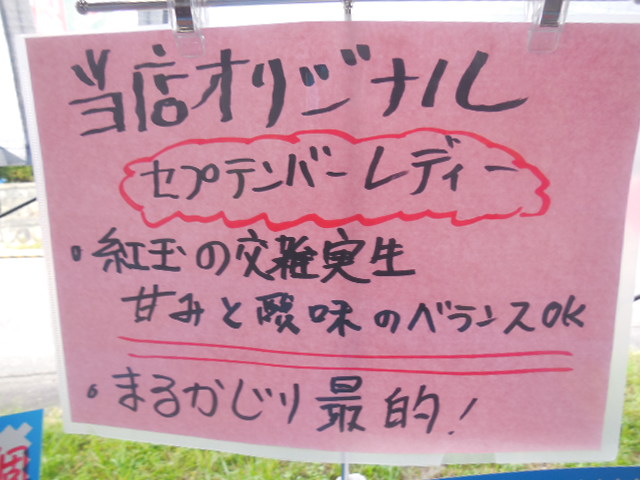 当店オリジナル
セプテンバーレディー
・紅玉の交雑実生
甘みと酸味のベランスOK
・まるかじり最的!